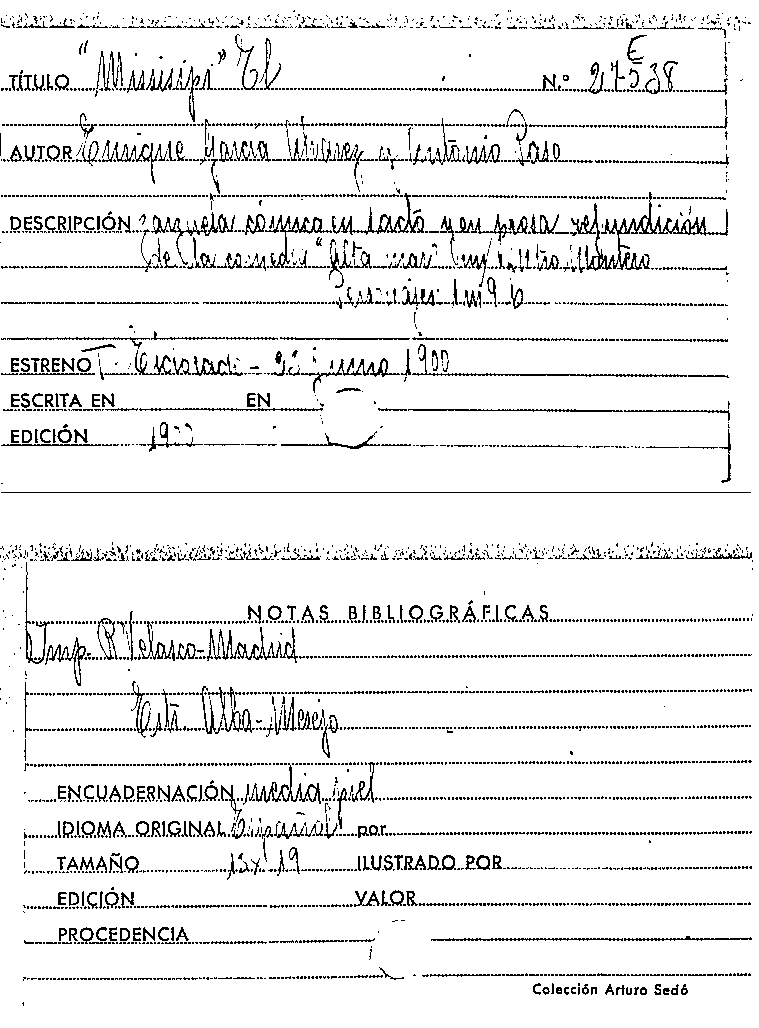 TÍTULO "Missisipi" El N.º E 27538
AUTOR Enrique García Alvarez y Antonio Paso
DESCRIPCIÓN zarzuela cómica en 1 acto y en prosa refundición
de la comedia "Alta mar" Montero
Personajes 1m 9 h
ESTRENO T. Eldorado - junio 1900
ESCRITA EN EN
EDICIÓN 1900
NOTAS BIBLIOGRÁFICAS
Imp. R Velasco-Madrid
Estr. Alba-Mesejo
ENCUADERNACIÓN media piel
IDIOMA ORIGINAL Español por
TAMAÑO 13x19 ILUSTRADO POR
EDICIÓN VALOR
PROCEDENCIA
Colección Arturo Sedó